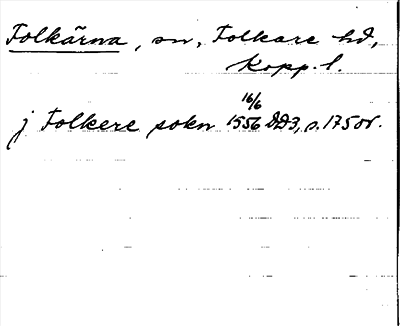 Folkärna, sn, Folkare hd,
Kopp. l.
j Folkere sokn 16/6 1556 DD3, s. 175 or.